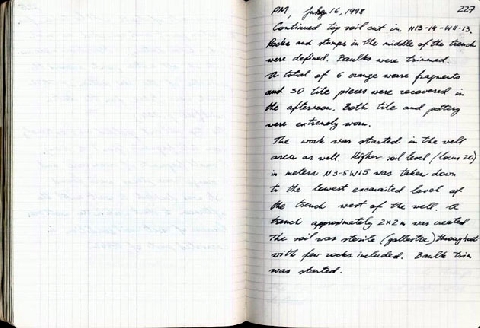 227
PM, July 16, 1998
Continued top soil cut in N13-14-W11-13.
Rocks and stumps in the middle of the trench
were defined. Baulks were trimmed.
A total of 6 orange ware fragments
and 30 tile pieces were recovered in
the afternoon. Both tile and pottery
were extremely worn.
The work was started in the well
area as well. Higher soil level (locus 2)
in meters N3-5 was taken down
to the lowest excavated level of
the trench west of the well. A
trench approximately 2x2m was created
The soil was sterile throughout
with few rocks included. Baulk trim
was started.